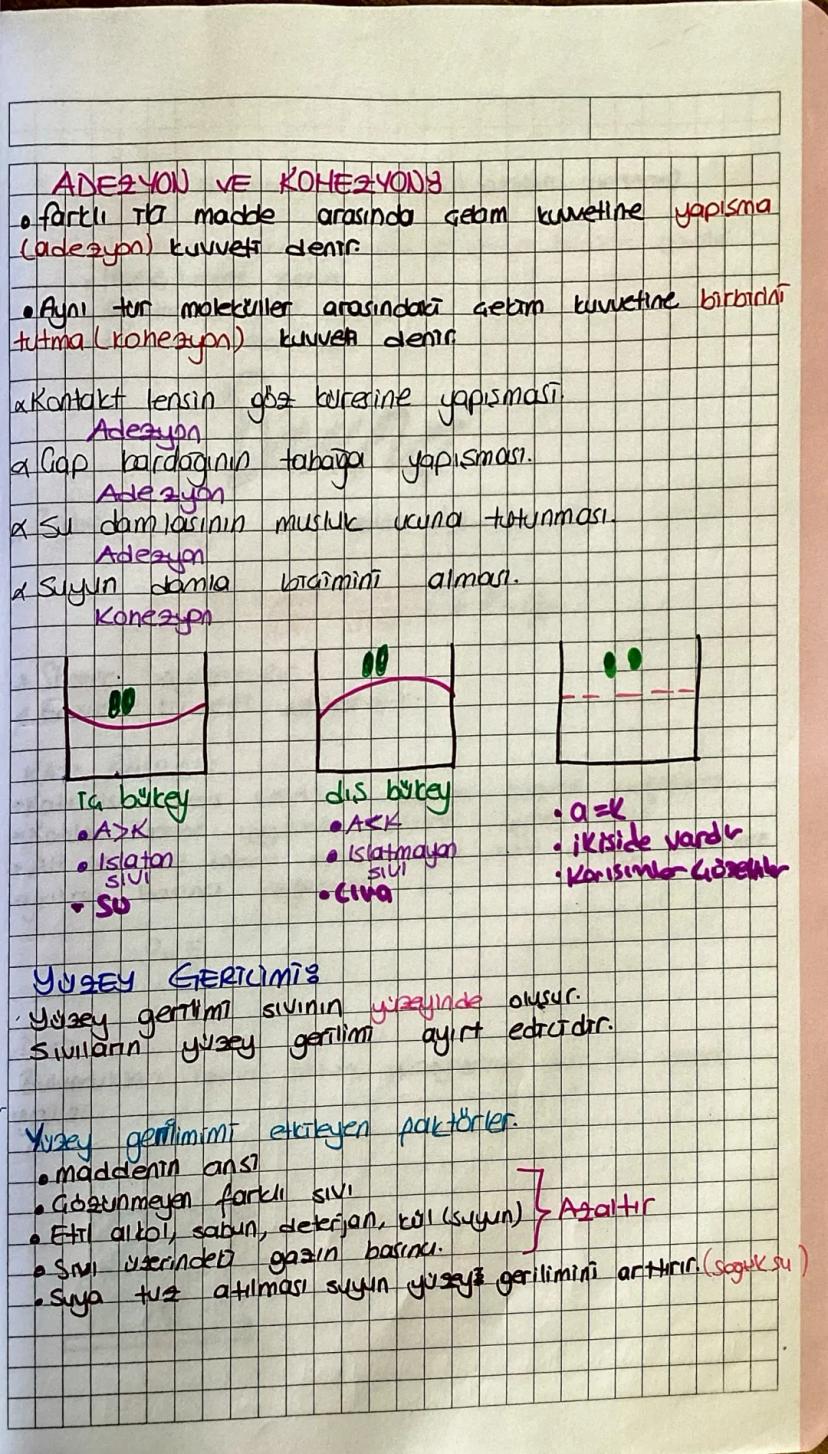 ADEZYON VE KOHEZYON:
• farklı iki madde arasında çekim kuvvetine yapışma
(adezyon) kuvveti denir.
• Aynı tür moleküller arasındaki çekim kuvvetine birbirini
tutma (kohezyon) kuvveti denir.
α Kontakt lensin göz küresine yapışması.
Adezyon
α Çap bardağının tabağa yapışması.
Adezyon
α Su damlasının musluk ucuna tutunması.
Adezyon
α Suyun damla biçimini alması.
Kohezyon
iç bükey dış bükey
• A>K • A<K • a=K
• Islatan sıvı • Islatmayan sıvı • ikiside vardır
• Su • Civa • Karışımlar Gözenekler
YÜZEY GERİLİMİ:
· Yüzey gerilimi sıvının yüzeyinde oluşur.
Sıvıların yüzey gerilimi ayırt edicidir.
Yüzey gerilimimi etkileyen faktörler.
• maddenin cinsi
• Çözünmeyen farklı sıvı
• Etil alkol, sabun, deterjan, kül (suyun) } Azaltır
• Sıvı üzerindeki gazın basıncı.
• Suya tuz atılması suyun yüzey gerilimini arttırır. (soğuk su)